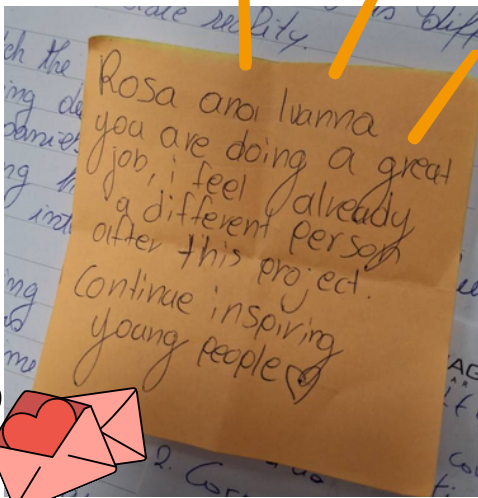 reality.
Rosa and Ivanna
you are doing a great
job, i feel already
a different person
after this project.
Continue inspiring
young people